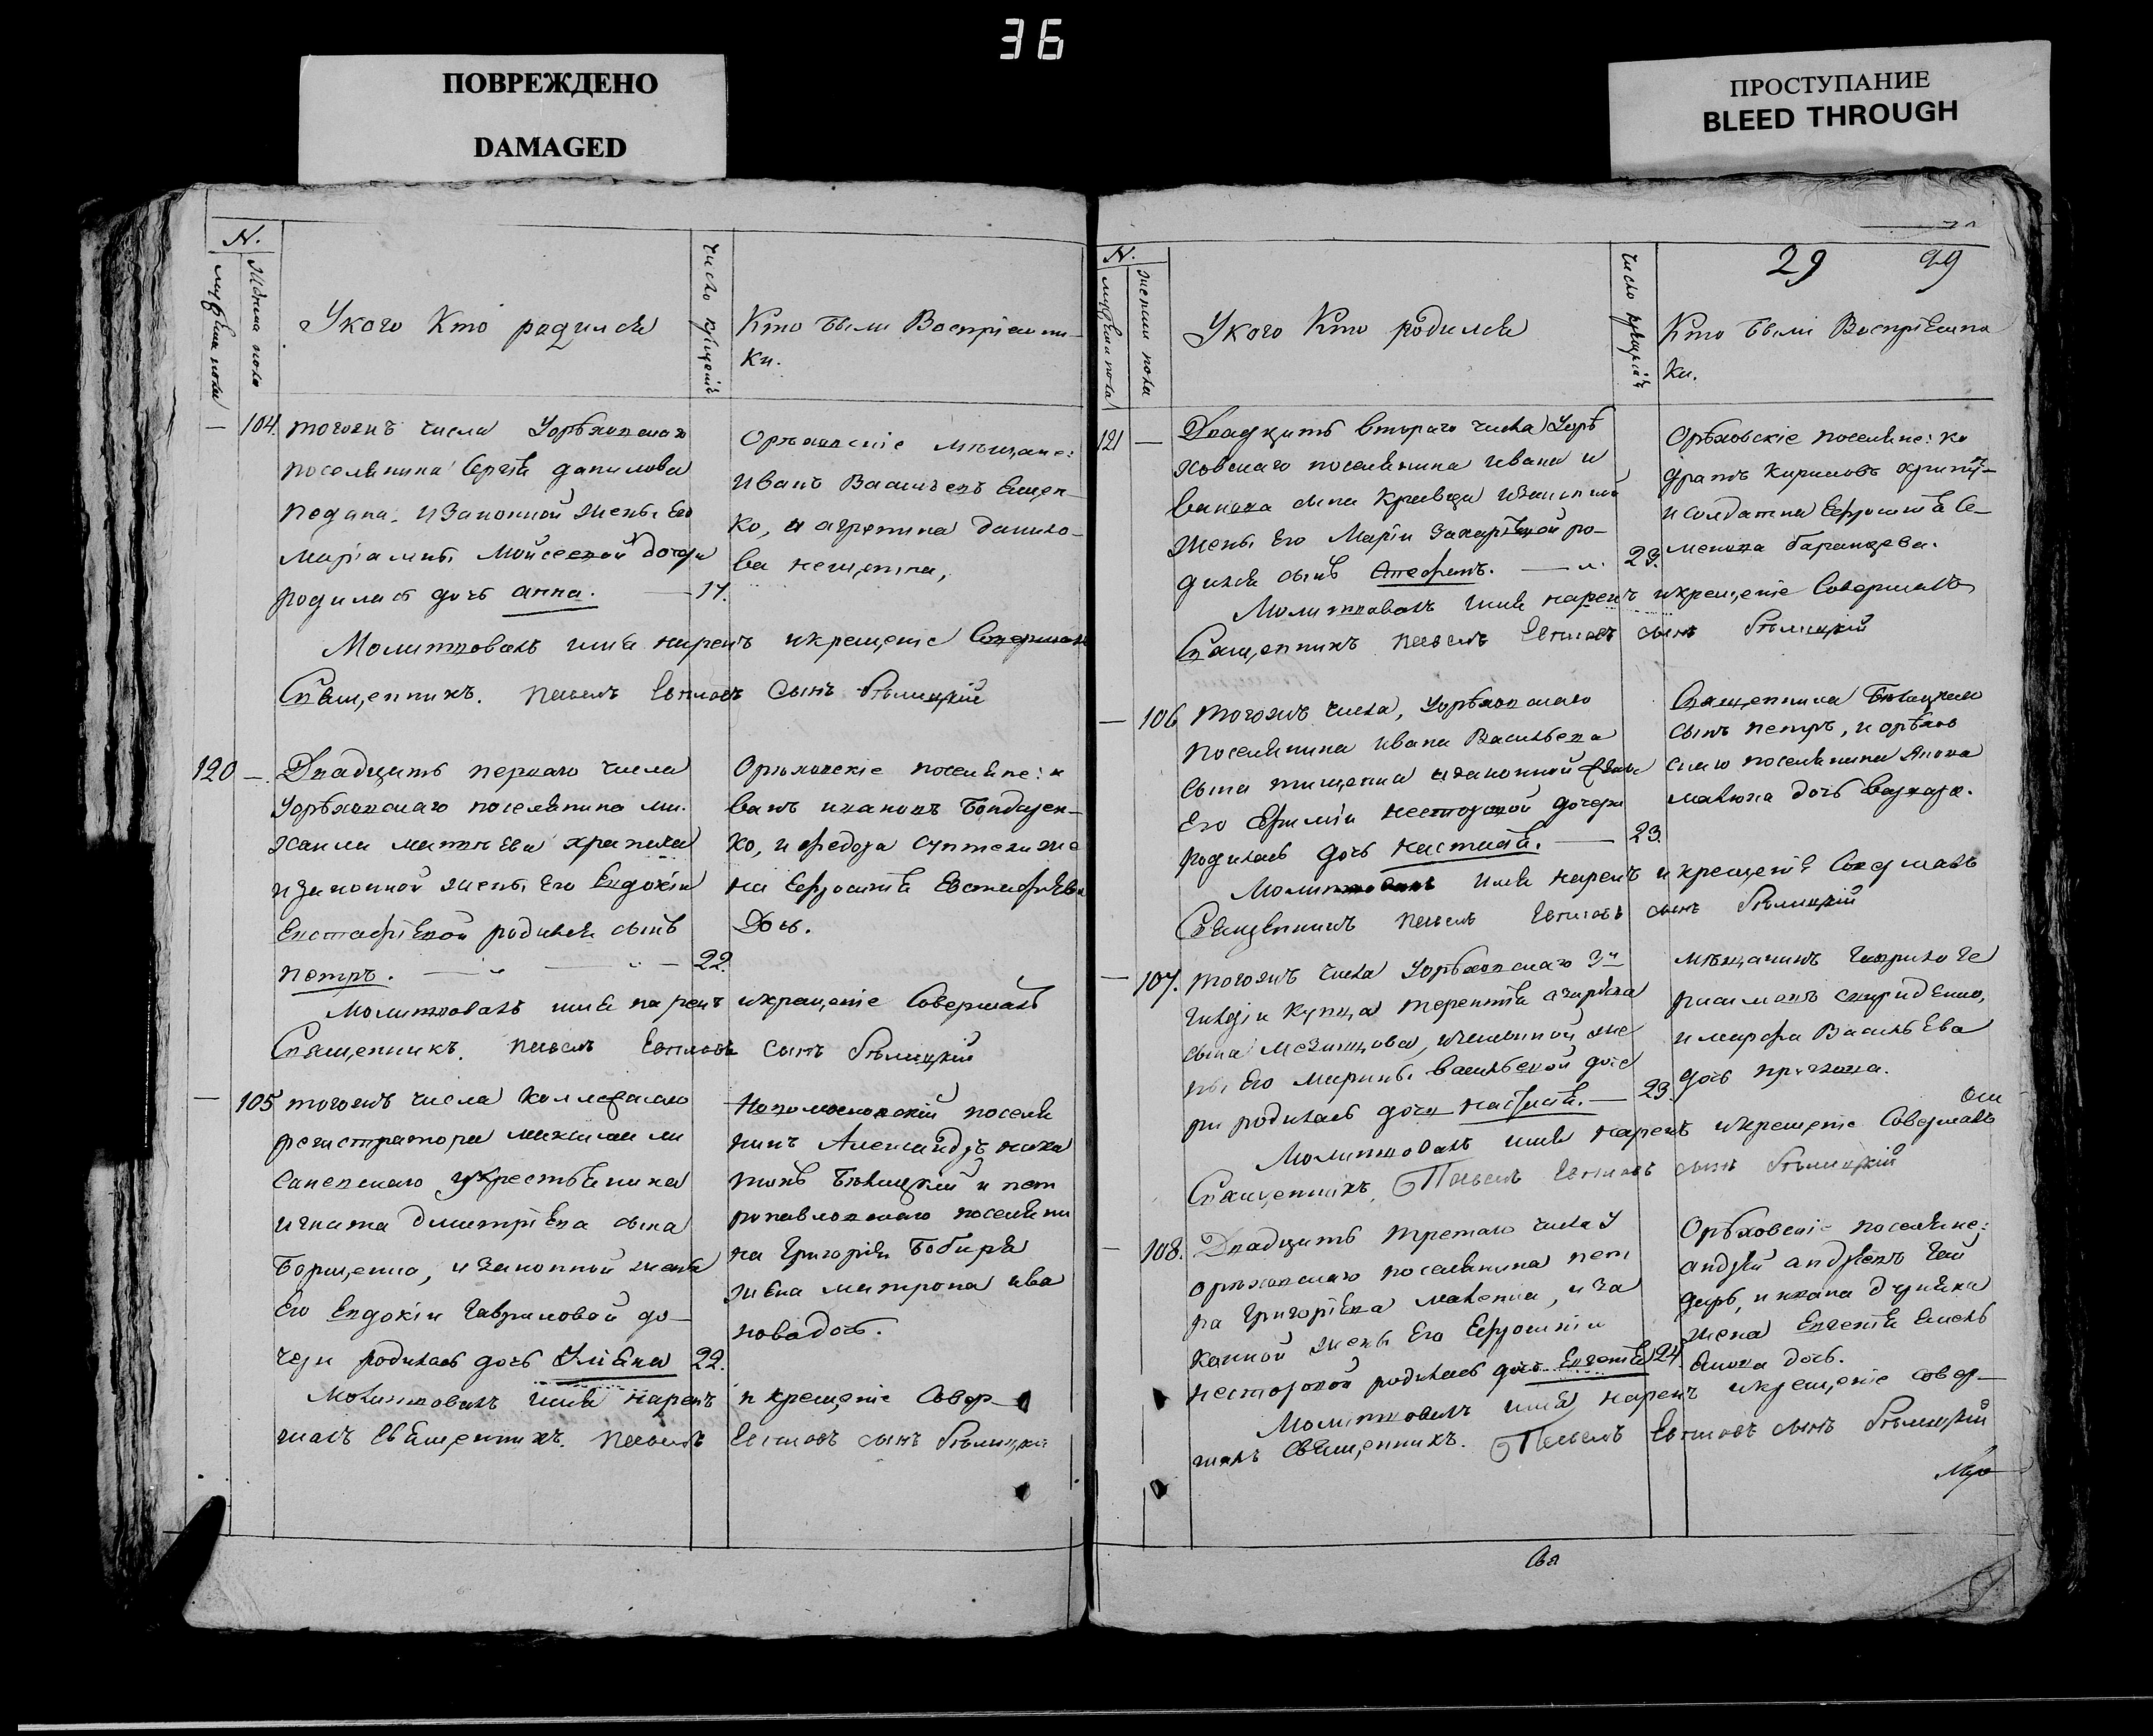 36
ПОВРЕЖДЕНО
DAMAGED
ПРОСТУПАНИЕ
BLEED THROUGH
N.
мужеска пола
Женска пола
Укого Кто родился
Число крещенія
Кто были Воспріемни-
ки.
— 104. тогожъ числа Уорѣховскаго
поселянина Сергѣя данилова
изаконной жены Его
Маріамны Мойсеевой дочери
родилась дочь анна. — 17.
Орѣховскіе мѣщане:
Иванъ Васильевъ
ко, и агрепина данило-
ва
Молитвовалъ имя нареч икрещеніе Совершалъ
Священникъ. Павелъ Евтиховъ Сынъ Бѣлицкій
120 —. Двадцать перваго числа
Уорѣховскаго поселянина ми-
хаила матвѣева храпала
изаконной жены Его Евдокіи
Евстафіевой родился сынъ
петръ. — 22.
Орѣховскіе поселяне: и
ванъ ивановъ Бондарен-
ко, и федора жена
Ефросинія Евстафіева
Дочь.
Молитвовалъ имя нареч икрещеніе Совершалъ
Священникъ. Павелъ Евтиховъ Сынъ Бѣлицкій
— 105 тогожъ числа Коллежскаго
регистратора михаила ми
укрестьянина
игната дмитріева сына
Борщенка, изаконной жены
Его Евдокіи Гавриловой до-
чери родилась дочь Уліяна 22.
поселя
нинъ Александръ
Бѣлицкій и пет
ропавловскаго поселяни
на Григорія Бобыря
жена матрона ива
нова дочь.
Молитвовалъ имя нареч икрещеніе Совер-
шалъ Священникъ. Павелъ Евтиховъ сынъ Бѣлицкій
N.
мужеска пола
женска пола
Укого Кто родился
Число крещенія
29 99
Кто были Воспріемни
ки.
121 — Двадцать втораго числа Уорѣ
ховскаго поселянина ивана и
ванова сына Кравца изаконной
жены Его Маріи Захаріевой ро-
дился сынъ Стефанъ. — 23.
Орѣховскіе поселяне: ко
дратъ Кириловъ
исолдатка Ефросинія Се-
менова баранцева.
Молитвовалъ имя нареч икрещеніе Совершалъ
Священникъ Павелъ Евтиховъ сынъ Бѣлицкій
— 106 тогожъ числа, Уорѣховскаго
поселянина ивана Васильева
сына тищенка изаконной жены
Его Ефиміи нестеровой дочери
родилась дочь настасія. — 23.
Священника Бѣлицкаго
сынъ петръ, и орѣхов
скаго поселянина
дочь варвара.
Молитвовалъ имя нареч икрещеніе Совершалъ
Священникъ Павелъ Евтиховъ сынъ Бѣлицкій
— 107. тогожъ числа Уорѣховскаго 3й
гильдіи купца терентія
сына изаконной же
ны Его марины васильевой доче
ри родилась дочь настасія. — 23
мѣщанинъ гаврило ге
расимовъ
имарфа Васильева
дочь
Молитвовалъ имя нареч икрещеніе Совершалъ
Священникъ. Павелъ Евтиховъ сынъ Бѣлицкій
— 108. Двадцать третаго числа У
орѣховскаго поселянина пет
ра Григоріева иза
конной жены Его Ефросиніи
нестеровой родилась дочь Евгенія 24.
Орѣховскіе поселяне:
андрей андреевъ гай
даръ, и ивана
жена Евгенія
дочь.
Молитвовалъ имя нареч икрещеніе совер-
шалъ Священникъ. Павелъ Евтиховъ сынъ Бѣлицкій